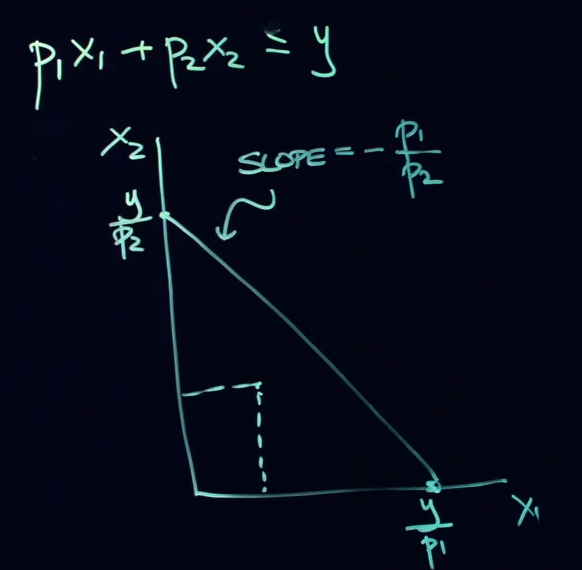 p₁x₁ + p₂x₂ ≤ y
x₂
SLOPE = - p₁/p₂
y/p₂
y/p₁
x₁